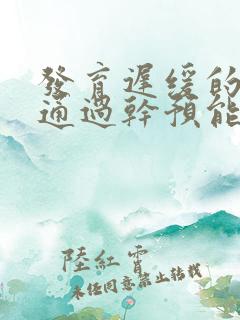 發育遲緩的
通過幹預能
陸紅霄
未經同意禁止轉載